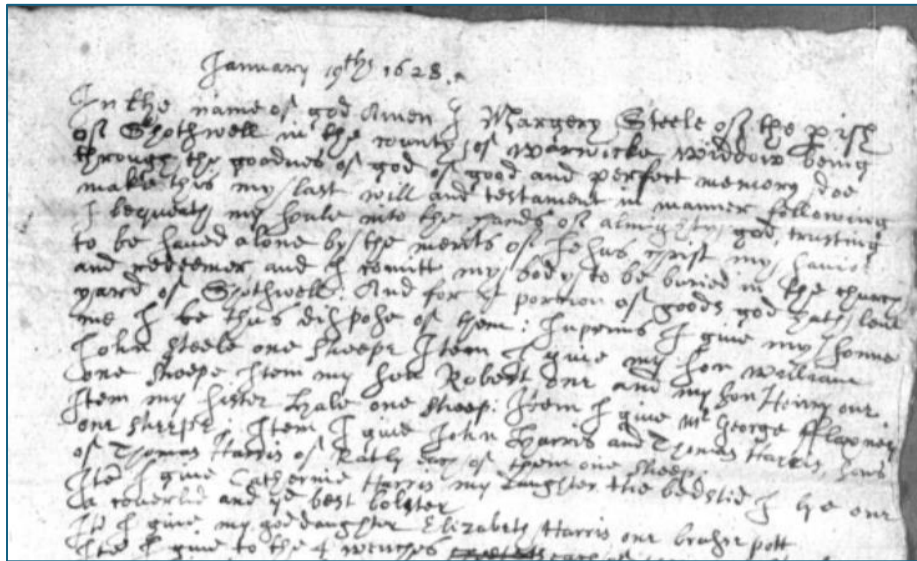 January 19th 1628.
In the name of god Amen I Margery Steele of the pish
of Shothwell in the county of warwicke widdow being
through the goodnes of god of good and perfect memory doe
make this my last will and testament in manner following
I bequeath my soule into the hands of almighty god, trusting
to be saved alone by the merits of Jesus christ my savio
and redeemer and I comitt my body to be buried in the church
yard of Shothwell: And for portion of goods god hath lent
me I be thus dispose of them: Inprims I give my sonne
John Steele one sheepe Item I give my son William
one sheepe Item my son Robert one and my son Henry one
Item my sister Hale one sheep: Item I give Mr George
one sheepe: Item I give John Harris and Thomas Harris sons
of Thomas Harris of Ratly each of them one sheep.
Ite I give Catherine Harris my daughter the bedstid I lye one
a coverlid and ye best bolster
Ite I give my goddaughter Elizabeth Harris one brasse pott
Ite I give to the 4 wenches